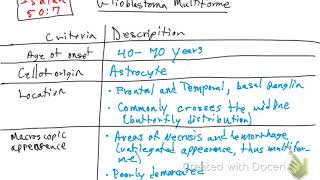 Isaiah
50:7
Glioblastoma Multiforme
Criteria Description
Age of onset 40-70 years
Cell of origin Astrocyte
Location • Frontal and Temporal, basal ganglia
• Commonly crosses the midline
(butterfly distribution)
Macroscopic
appearence
• Areas of necrosis and hemorrhage
(variegated appearence, thus multifor-
me)
• Poorly demarcated
Created with Doceri